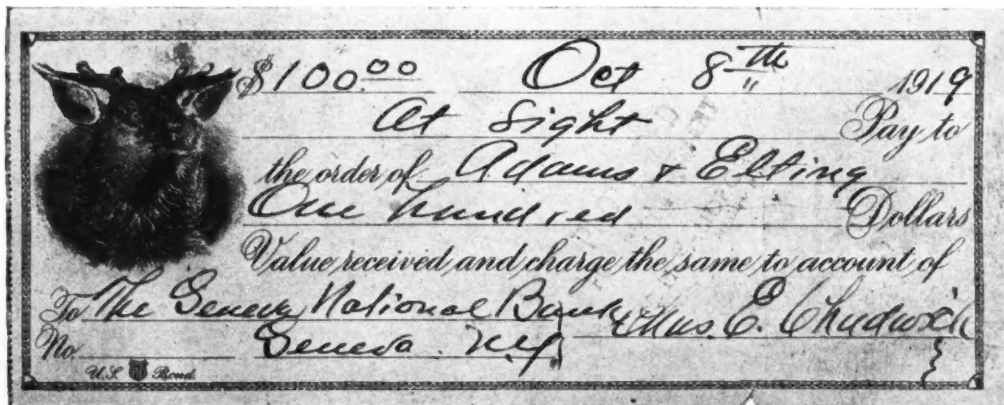 $100.00 Oct 8th 1919
At Sight Pay to
the order of Adams & Elting
One hundred Dollars
Value received and charge the same to account of
To The Geneva National Bank Chas. E. Chadwick
No Geneva. N.Y.
U.S. Bond